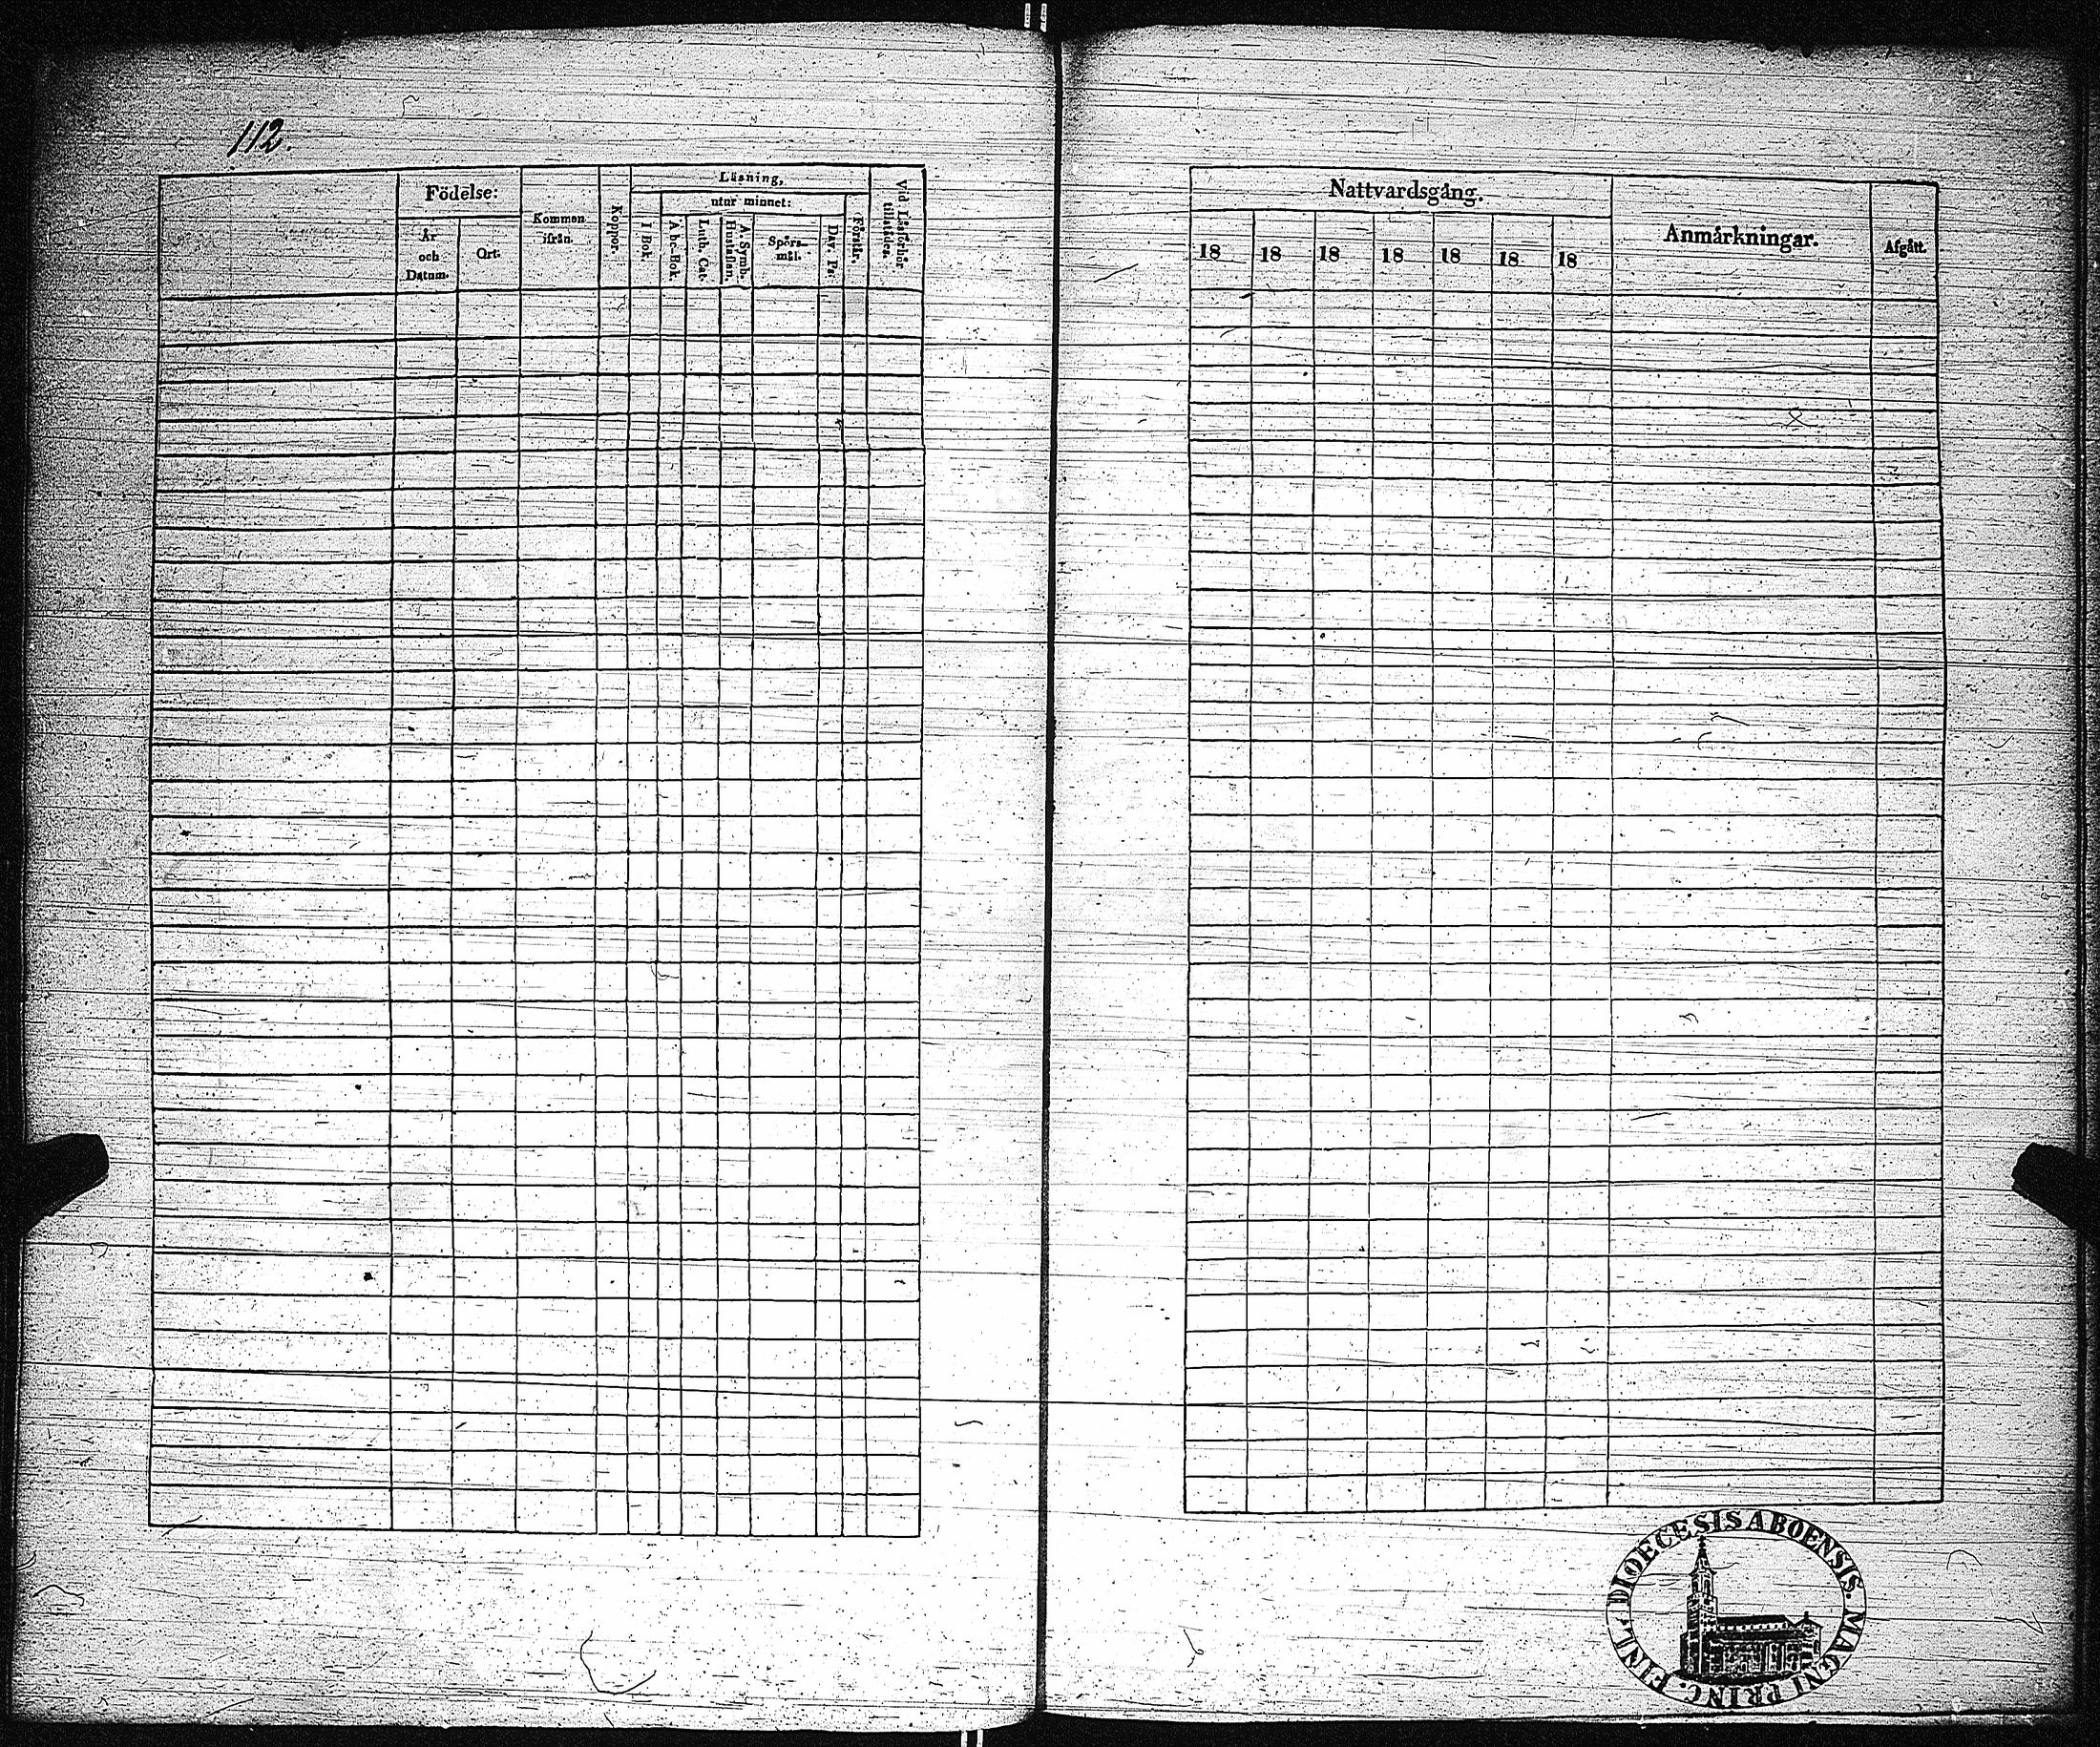 112.
Födelse:
År
och
Datum.
Ort.
Kommen
ifrån.
Koppor.
Läsning,
utur minnet:
I Bok
Abc-Bok
Luth. Cat.
Hustaflan.
A. Symb.
Spörs-
mål.
Dav. Ps.
Förstår.
Vid Läsförhör
tillstädes.
Nattvardsgång.
18 18 18 18 18 18 18
Anmärkningar.
Afgått.
DIOECESIS ABOENSIS. MAGNI PRINC. FINL.